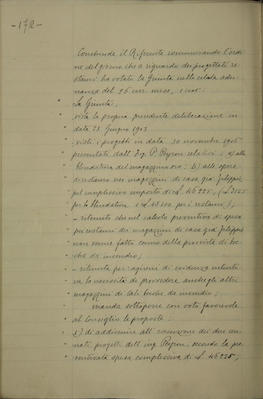 -172-
Conchiude il Referente comunicando l'ordi
ne del giorno che a riguardo dei progettati re
stauri ha votato la Giunta nella citata adu
nanza del 26 corr. mese, e cioè:
La Giunta,
vista la propria precedente deliberazione in
data 23 Giugno 1903
visti i progetti in data 30 novembre 1905
presentati dall'Ing. P. Peyron relativi: a) alla
; b) alle opere
nei magazzini di casa già Felippi
pel complessivo importo di L. 46 225,
per la e L. per i restauri);
- ritenuto che nel calcolo preventivo di spesa
pei restauri dei magazzini di casa già Felippi
non venne fatto cenno della provvista di boc
che da incendio;
- ritenuta per ragioni di evidenza
la necessità di provvedere anche gli altri
magazzini di tali bocche da incendio;
manda sottoporre con voto favorevole
al Consiglio le proposte:
di addivenire all'esecuzione dei due cen
nati progetti dell'ing. Peyron, secondo la pre
ventivata spesa complessiva di L. 46 225;